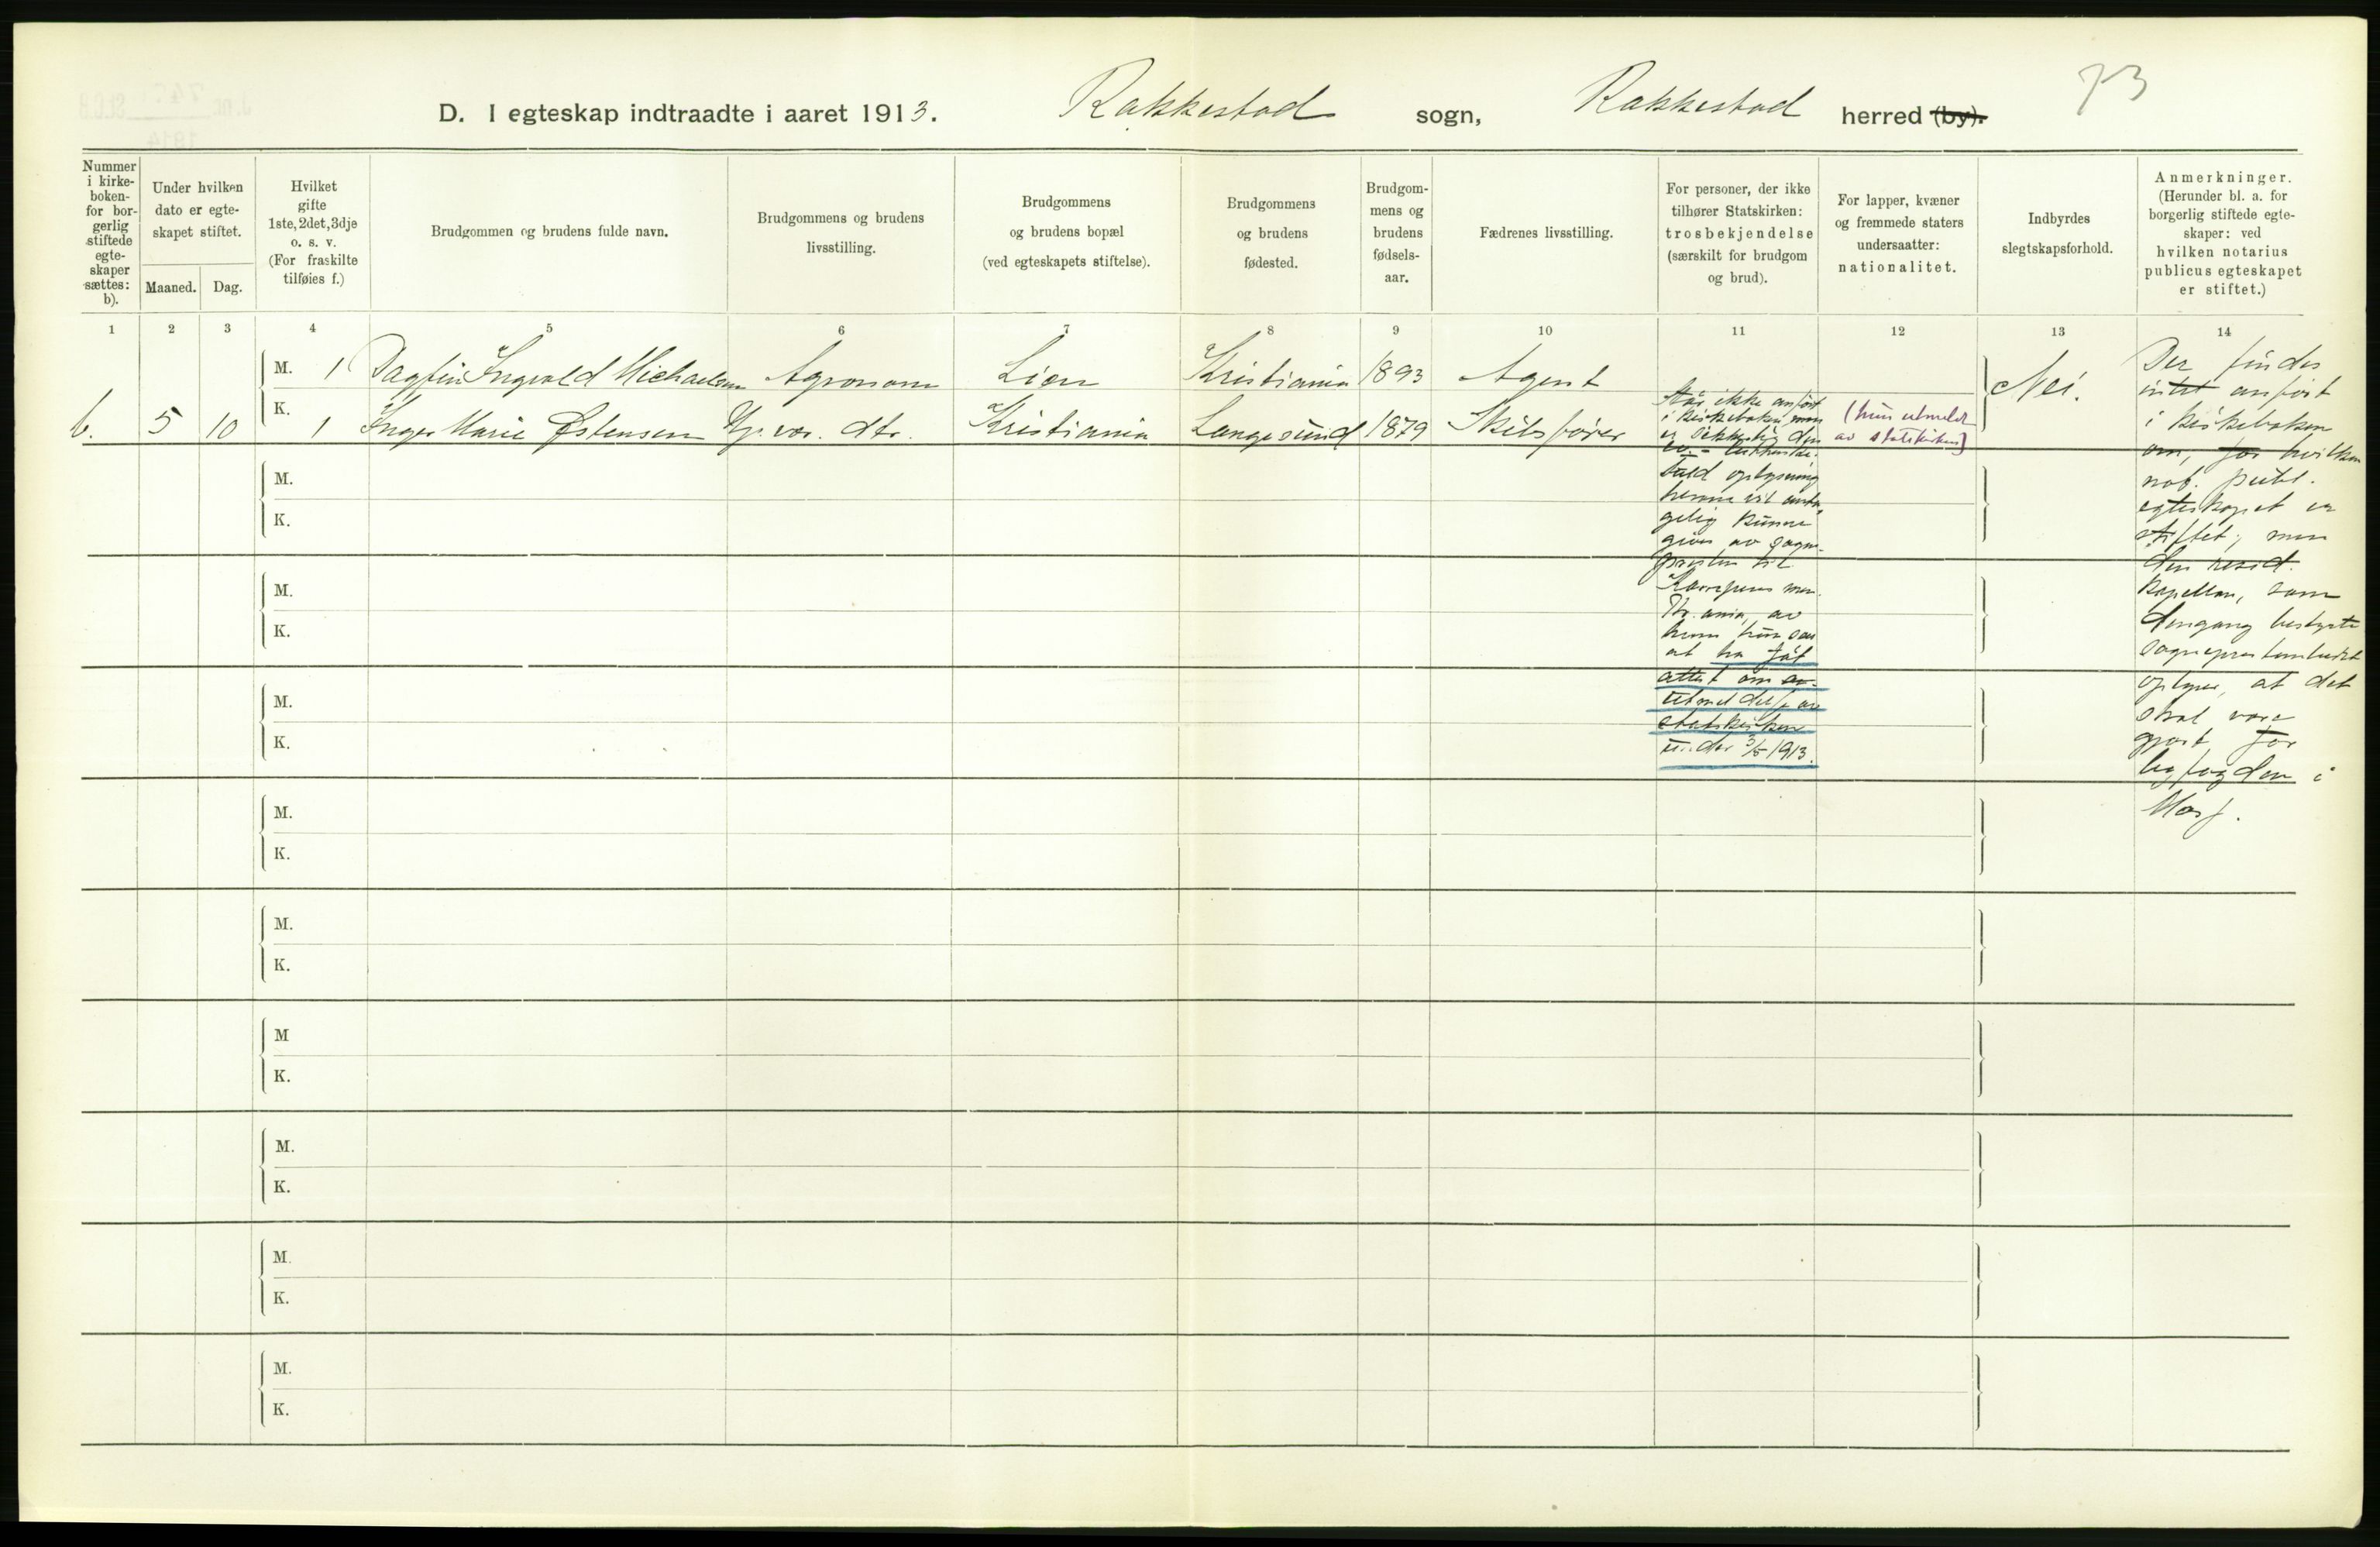 73
D. I egteskap indtraadte i aaret 1913. Rakkestad sogn, Rakkestad herred (by).
Nummer
i kirke-
boken-
for bor-
gerlig
stiftede
egte-
skaper
sættes:
b).
Under hvilken
dato er egte-
skapet stiftet.
Maaned. Dag.
Hvilket
gifte
1ste, 2det, 3dje
o. s. v.
(For fraskilte
tilføies f.)
Brudgommen og brudens fulde navn.
Brudgommens og brudens
livsstilling.
Brudgommens
og brudens bopæl
(ved egteskapets stiftelse).
Brudgommens
og brudens
fødested.
Brudgom-
mens og
brudens
fødsels-
aar.
Fædrenes livsstilling.
For personer, der ikke
tilhører Statskirken:
trosbekjendelse
(særskilt for brudgom
og brud).
For lapper, kvæner
og fremmede staters
undersaatter:
nationalitet.
Indbyrdes
slegtskapsforhold.
Anmerkninger.
(Herunder bl. a. for
borgerlig stiftede egte-
skaper: ved
hvilken notarius
publicus egteskapet
er stiftet.)
1 2 3 4 5 6 7 8 9 10 11 12 13 14
M. 1 Dagfin Ingvald Michaelsen Agronom Lier Kristiania 1893 Agent Nei.
b. 5 10 K. 1 Inger Marie Østensen Gp. væv. dtr. Kristiania Langesund 1879 Skibsfører
Står ikke anført
i kirkeboken, men
er
fuld oplysning
herom vil anta-
gelig kunne
gives av sogne-
presten til
Kr.ania, av
hvem hun
at ha fåt
attest om
utmeldelse av
statskirken
under 3/5 1913.
(hun utmeldt
av statskirken)
Der findes
intet anført
i kirkeboken
om, for hvilken
not. publ.
egteskapet er
stiftet; men
den resid.
kapellan, som
dengang bestyrte
sogneprestembedet
oplyser, at det
skal være
gjort for
byfogden i
Moss.
M.
K.
M.
K.
M.
K.
M.
K.
M.
K.
M
K.
M.
K.
M.
K.
M.
K.